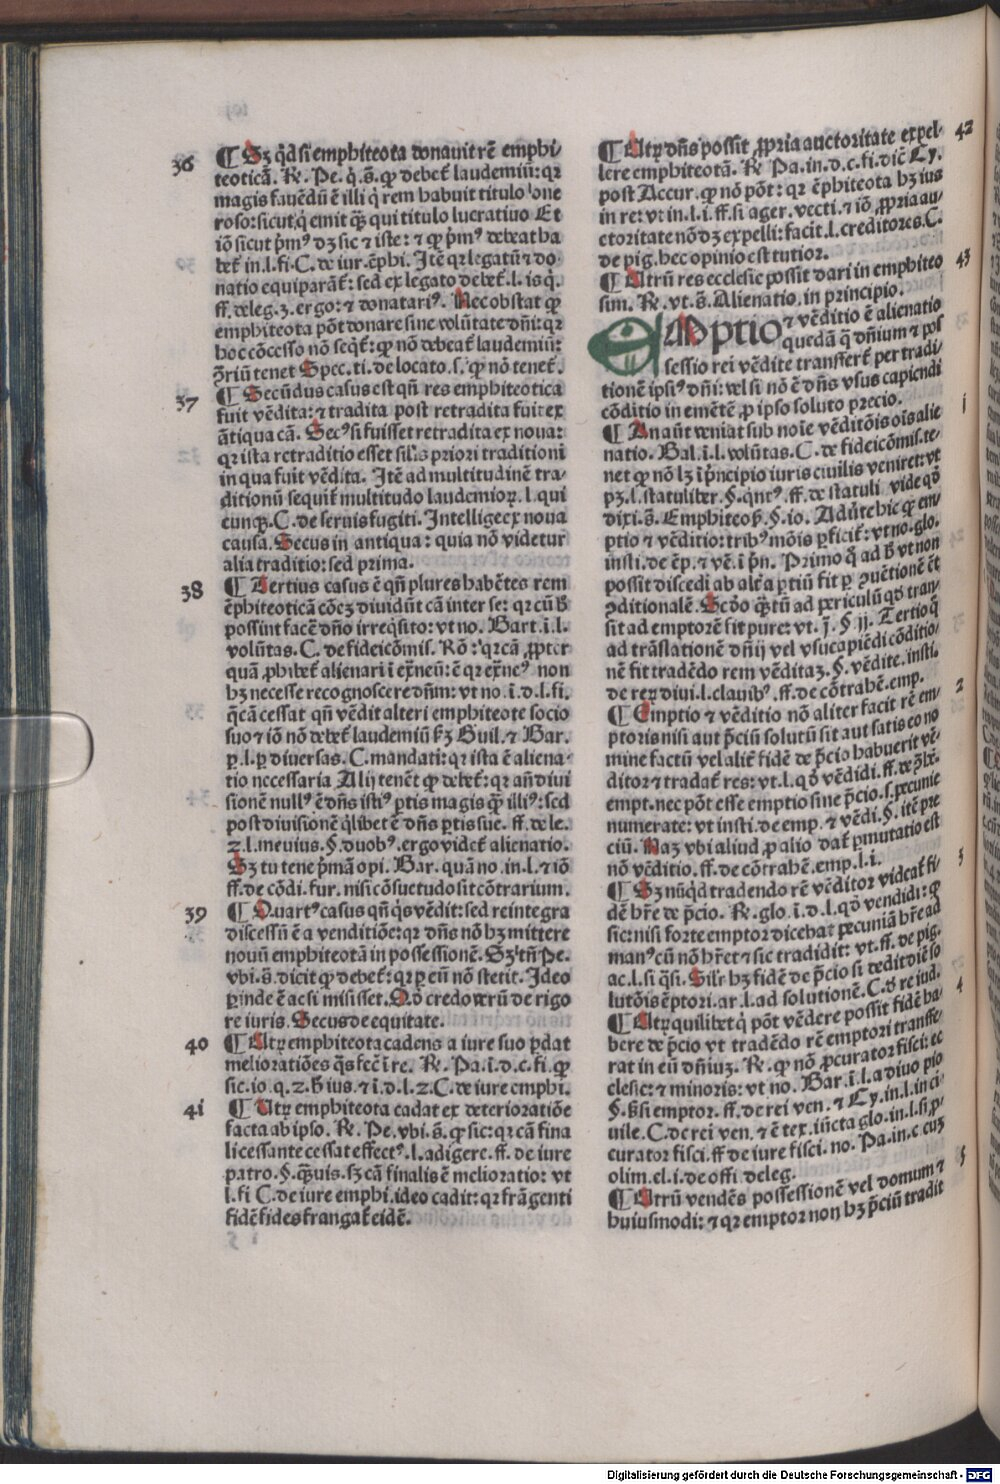 36
¶ Sꝫ qd si emphiteota donauit rē emphi-
teoticā. R̄. Pe. q̄. s̄. ꝙ debet̄ laudemiū: qꝛ
magis fauēdū ē illi q̄ rem habuit titulo one
roso: sicut q̄ emit qꝫ̄ qui titulo lucratiuo Et
iō sicut pm̄ꝰ dꝫ sic ⁊ iste: ⁊ ꝙ pm̄ꝰ debeat ha
bet̄ in. l. fi. C. de iur. ēphi. Itē qꝛ legatū ⁊ do
natio equiparāt̄: sed ex legato debet̄. l. is q̄.
ff. de leg. 3. ergo: ⁊ donatariꝰ. Nec obstat ꝙ
emphiteota pōt donare sine volūtate dn̄i: qꝛ
hoc cōcesso nō seqt̄: ꝙ nō debeat̄ laudemiū:
ꝯ̄riū tenet Spec. ti. de locato. s. ꝙ nō tenet̄.
37
¶ Secūdus casus est qn̄ res emphiteotica
fuit vēdita: ⁊ tradita post retradita fuit ex
ātiqua cā. Secꝰ si fuisset retradita ex noua:
qꝛ ista retraditio esset sil̄is priori traditioni
in qua fuit vēdita. Itē ad multitudinē tra-
ditionū sequit̄ multitudo laudemioꝝ. l. qui
cunqꝫ. C. de seruis fugiti. Intellige ex noua
causa. Secus in antiqua: quia nō videtur
alia traditio: sed prima.
38
¶ Tertius casus ē qn̄ plures habētes rem
ēphiteoticā cōeꝫ diuidūt eā inter se: qꝛ cū h̄
possint facē dn̄o irreqsito: vt no. Bart. ī. l.
volūtas. C. de fideicōmis. Rō: qꝛ cā ꝓpter
quā ꝓhibet̄ alienari ī exn̄eū: ē qꝛ exn̄eꝰ non
hꝫ necesse recognoscere dn̄m: vt no. ī. d. l. fi.
q̄ cā cessat qn̄ vēdit alteri emphiteote socio
suo ⁊ iō nō debet̄ laudemiū ẜꝫ Guil. ⁊ Bar.
ꝑ. l. ꝑ diuersas. C. mandati: qꝛ ista ē aliena-
tio necessaria Alij tenēt ꝙ debet̄: qꝛ añ diui
sionē nullꝰ ē dn̄s istiꝰ ꝑtis magis qꝫ̄ illiꝰ: sed
post diuisionē qlibet ē dn̄s ꝑtis sue. ff. de le.
2. l. meuius. §. duobꝰ. ergo videt̄ alienatio.
Sꝫ tu tene pm̄ā opi. Bar. quā no. in. l. ⁊ iō
ff. de cōdi. fur. nisi cōsuetudo sit cōtrarium.
39
¶ Quartꝰ casus qn̄ qs vēdit: sed re integra
discessū ē a venditiōe: qꝛ dn̄s nō hꝫ mittere
nouū emphiteotā in possessionē. Sꝫ tn̄ Pe.
vbi. s̄. dicit ꝙ debet̄: qꝛ ꝑ eū nō stetit. Ideo
ꝑinde ē ac si misisset. Qd̄ credo verū de rigo
re iuris. Secus de equitate.
40
¶ Utꝝ emphiteota cadens a iure suo ꝑdat
melioratiōes qs fec̄ ī re. R̄. Pa. ī. d. c. fi. ꝙ
sic. io. q. 2. h̄ ius. ⁊ ī. d. l. 2. C. de iure emphi.
4i
¶ Utꝝ emphiteota cadat ex deterioratiōe
facta ab ipso. R̄. Pe. vbi. s̄. ꝙ sic: qꝛ cā fina
li cessante cessat effectꝰ. l. adigere. ff. de iure
patro. §. qꝫ̄uis. sꝫ cā finalis ē melioratio: vt
l. fi C. de iure emphi. ideo cadit: qꝛ frāgenti
fidē fides frangat̄ eidē.
42
¶ Utꝝ dn̄s possit ꝓpria auctoritate expel-
lere emphiteotā. R̄. Pa. in. d. c. fi. dic̄ Cy.
post Accur. ꝙ nō pōt: qꝛ ēphiteota hꝫ ius
in re: vt in. l. i. ff. si ager. vecti. ⁊ iō ꝓpria au-
ctoritate nō dꝫ expelli: facit. l. creditores. C.
de pig. hec opinio est tutior.
43
¶ Utrū res ecclesie possit dari in emphiteo
sim. R̄. vt. s̄. Alienatio. in principio.
EMptio ⁊ vēditio ē alienatio
quedā q̄ dn̄ium ⁊ pos
sessio rei vēdite transfert̄ per tradi
tionē ipsiꝰ dn̄i: vel si nō ē dn̄s vsus capiendi
cōditio in emētē ꝓ ipso soluto precio.
i
¶ An aūt veniat sub noīe vēditōis oīs alie
natio. Bal. ī. l. volūtas. C. de fideicōmis. te-
net ꝙ nō lꝫ ī pn̄cipio iuris ciuilis veniret: vt
pꝫ. l. statuliber. §. qn̄tꝰ. ff. de statuli. vide qd̄
dixi. s̄. Emphiteosꝫ. §. io. Adūte hic ꝙ em
ptio ⁊ vēditio: tribꝰ mōis ꝑficit̄: vt no. glo.
insti. de ēp. ⁊ vē. ī pn̄. Primo qd̄ ad h̄ vt non
possit discedi ab alt̄a ꝑtiū fit ꝑ ꝯuētionē ēt
ꝯditionalē. Scd̄o qꝫ̄tū ad periculū qd̄ tran-
sit ad emptorē fit pure: vt. j̄. §. ij. Tertio qd̄
ad trāslationē dn̄ij vel vsucapiēdi cōditio-
nē fit tradēdo rem vēditaꝫ. §. vēdite. insti.
de reꝝ diui. l. clauibꝰ. ff. de cōtrahē. emp.
2
¶ Emptio ⁊ vēditio nō aliter facit rē em-
ptoris nisi aut pc̄iū solutū sit aut satis eo no
mine factū vel alit̄ fidē de pc̄io habuerit vē-
ditor ⁊ tradat̄ res: vt. l. qd̄ vēdidi. ff. de ꝯ̄hē.
empt. nec pōt esse emptio sine pc̄io. s. pecunie
numerate: vt insti. de emp. ⁊ vēdi. §. itē pre
ciū. Naꝫ vbi aliud ꝓ alio dat̄ ꝑmutatio est
nō vēditio. ff. de cōtrahē. emp. l. i.
3
¶ Sꝫ nūqd tradendo rē vēditor videat̄ fi-
dē hr̄e de pc̄io. R̄. glo. ī. d. l. qd̄ vendidi: ꝙ
sic: nisi forte emptor dicebat pecuniā hr̄e ad
manꝰ cū nō hr̄et ⁊ sic tradidit: vt. ff. de pig.
ac. l. si qsi. Silr̄ hꝫ fidē de pc̄io si dedit diē so
lutōis ēptori. ar. l. ad solutionē. C. d̄ re iud.
4
¶ Utꝝ quilibet q̄ pōt vēdere possit fidē ha-
bere de pc̄io vt tradēdo rē emptori transfe-
rat in eū dn̄iuꝫ. R̄. ꝙ nō ꝓcurator fisci: ec
clesie: ⁊ minoris: vt no. Bar. ī. l. a diuo pio
§. h̄ si emptor. ff. de rei ven. ⁊ Cy. in. l. in ci-
uile. C. de rei ven. ⁊ ē tex. iūcta glo. in. l. si ꝓ-
curator fisci. ff de iure fisci. no. Pa. in. c. cuꝫ
olim. el. i. de offi. deleg.
5
¶ Utrū vendēs possessionē vel domum ⁊
huiusmodi: ⁊ qꝛ emptor non hꝫ pc̄iū tradit
Digitalisierung gefördert durch die Deutsche Forschungsgemeinschaft - DFG